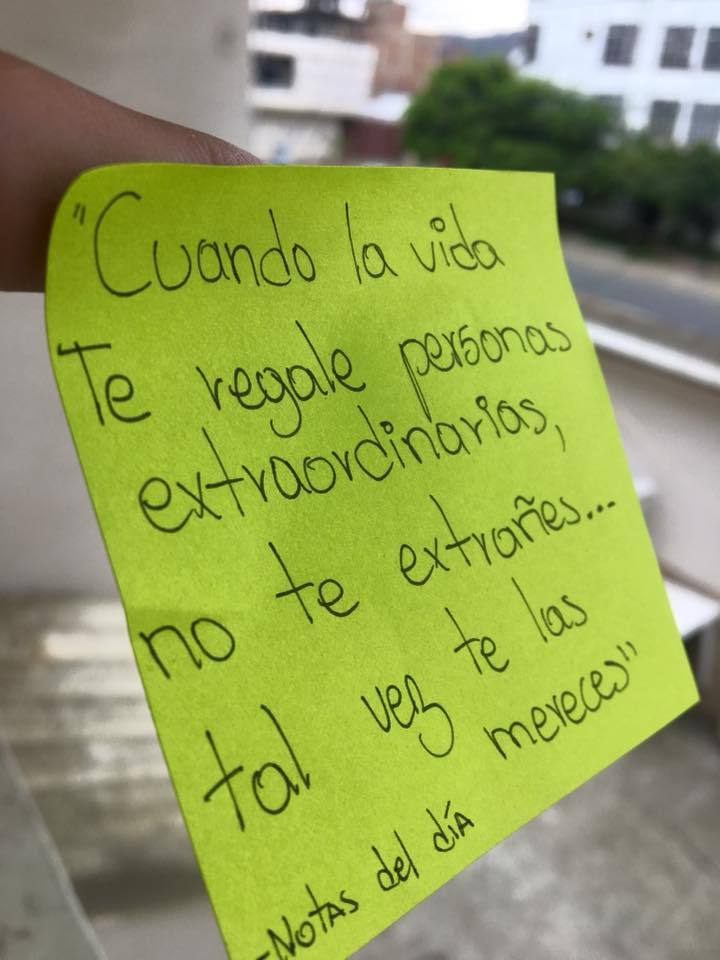 "Cuando la vida
Te regale personas
extraordinarias,
no te extrañes...
tal vez te las
mereces"
-Notas del día